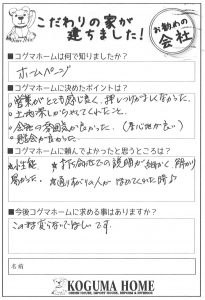 こだわりの家が
建ちました!
お勧めの
会社
■コグマホームは何で知りましたか?
ホームページ
■コグマホームに決めたポイントは?
。営業がとても感じ良く、押しつけがましくなかった。
。土地探しからしてくれたこと。
。会社の雰囲気が良かった。(居心地が良い)
。相性が良かった。
■コグマホームに頼んでよかったと思うところは?
*性能 *打ち合せでの説明が細かく 分かり
易かった。 *通りがかりの人が ほめてくれた時♪
■今後コグマホームに求める事はありますか?
このまま変わらないでほしいです。
名前
KOGUMA HOME